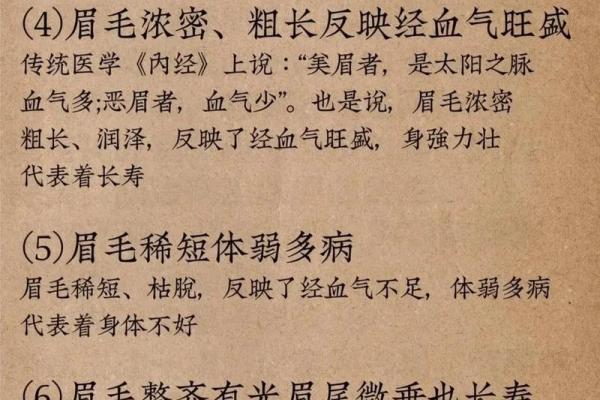 (4)眉毛浓密、粗长反映经血气旺盛
传统医学《内经》上说：“美眉者，是太阳之脉
血气多;恶眉者，血气少”。也是说，眉毛浓密
粗长、润泽，反映了经血气旺盛，身強力壮
代表着长寿
(5)眉毛稀短体弱多病
眉毛稀短、枯脫，反映了经血气不足，体弱多病
代表着身体不好
(6)眉毛整齐有光眉尾微垂也长寿